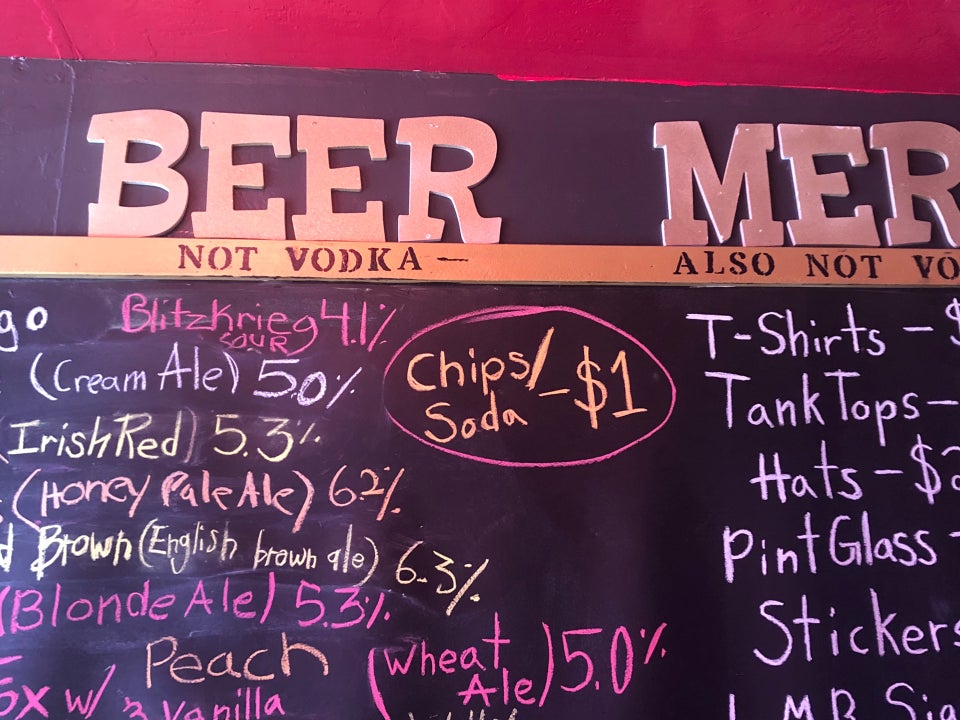 BEER
NOT VODKA —
go Blitzkrieg 4.1%
SOUR
(Cream Ale) 5.0%
(Irish Red) 5.3%
(Honey Pale Ale) 6.2%
d Brown (English brown ale) 6.3%
(Blonde Ale) 5.3%
Peach (Wheat Ale) 5.0%
5x w/ 3 vanilla
Chips/
Soda – $1
MER
ALSO NOT VO
T-Shirts – $
Tank Tops –
Hats – $2
Pint Glass –
Stickers